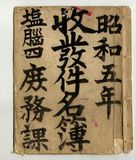 昭和五年
收發件名簿
塩腦四
庶務課